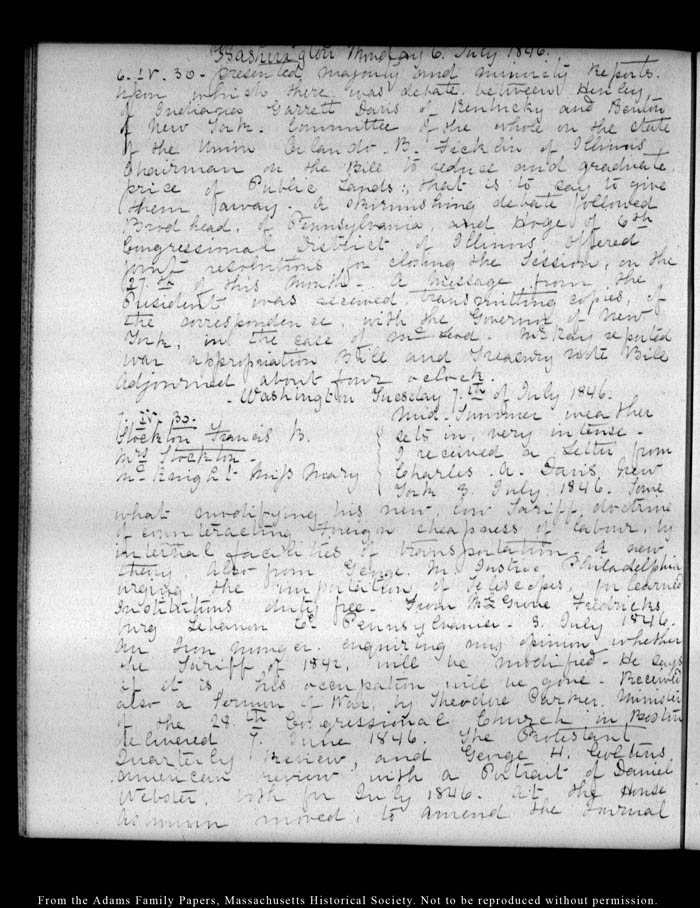 Washington Monday 6. July 1846.
6. IV. 30. presented, majority and minority Reports.
upon which there was debate between Henley,
of Indiana Garrett Davis of Kentucky and Benton
of New York. Committee of the whole on the state
of the Union Orlando. B. Ficklin of Illinois,
Chairman on the Bill to reduce and graduate,
price of Public Lands; that is to say to give
them away. A skirmishing debate followed
Brodhead, of Pennsylvania, and Hoge of 6th
Congressional District of Illinois, offered
joint resolutions for closing the Session, on the
27.th of this month. A Message from the
President was received, transmitting copies, of
the correspondence, with the Governor of New
York, in the case of McLeod. McKay reported
war appropriation Bill and Treasury note Bill
Adjourned about four o clock.
Washington Tuesday 7.th of July 1846.
7. IV. 30.
Stockton Francis B.
Mrs Stockton
McKnight Miss Mary
Mid-Summer weather
sets in, very intense.
I received a Letter from
Charles A. Davis, New
York 3. July 1846. Some
what modifying his new, low Tariff, doctrine
of counteracting Foreign cheapness of labour, by
internal facilities of transportation, A new
theory. Also from George M. Justice Philadelphia
urging, the importation of Telescopes, for learned
Institutions duty free. From Grove Fredricks,
burg Lebanon Co. Pennsylvania. 3. July 1846.
An Iron monger. enquiring my opinion whether
the Tariff of 1842, will be modified. He says
if it is his occupation will be gone. Received
also a Sermon of War, by Theodore Parker, Minister
of the 28.th Congressional Church in Boston
delivered 7. June 1846. The Protestant
Quarterly Review, and George H. Coltons
American review with a Portrait of Daniel
Webster, both for July 1846. At the House
Ashmun moved, to amend the Journal
From the Adams Family Papers, Massachusetts Historical Society. Not to be reproduced without permission.